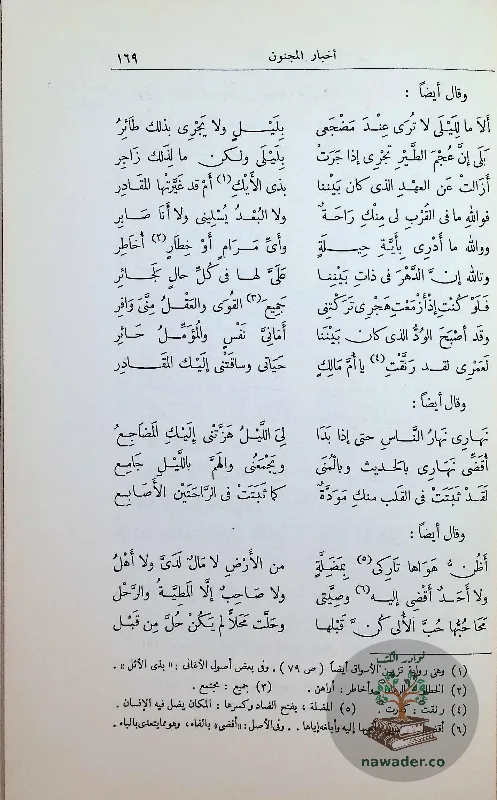 أخبار المجنون ١٦٩
وقال أيضاً :
ألاَ ما لِلَيْلَى لا تُرَى عِنْدَ مَضْجَعى بِلَيْلٍ ولا يَجْرِى بذلك طَائِرُ
بَلَى إنَّ عُجْمَ الطَّيْرِ تَجْرِى إذا جَرَتْ بِلَيْلَى ولكن ما لِذَلك زَاجِر
أزَالَتْ عَن العهدِ الذى كان بَيْنَنا بذى الأَيْكِ (١) أمْ قد غَيَّرَتْها المقَادِر
فوالله مافى القُرْبِ لى مِنْكِ رَاحَةٌ ولا البُعْدُ يُسْلِينى ولا أنَا صَابِر
ووالله ما أدْرِى بأيَّةِ حِيلَةٍ وأىِّ مَرَامٍ أوْ خِطَارٍ (٢) أُخَاطِر
وتالله إنَّ الدَّهْرَ فى ذاتِ بَيْنِنا عَلَىَّ لها فى كُلِّ حالٍ لَجَائِر
فَلَوْ كُنْتِ إذْ أزْمَعْتِ هَجْرِى تَرَكْتِنى جَمِيعَ (٣) القُوَى والعَقْلُ مِنِّى وَافِر
وقد أصْبَحَ الوُدُّ الذى كان بَيْنَنَا أمَانِىَّ نَفْسٍ والمُؤَمِّلُ حَائِر
لَعَمْرِى لقد رَنَّقْتِ (٤) يا أُمَّ مَالِكٍ حَيَاتى وساقَتْنِى إلَيْكِ المَقَادِر
وقال أيضاً :
نَهَارِى نَهارُ النَّاسِ حتى إذا بَدَا لِىَ اللَّيْلُ هَزَّتْنِى إلَيْكِ المَضَاجِعُ
أُقَضِّى نَهَارِى بالحديث وبالْمُنَى ويَجْمَعُنِى والهَمَّ باللَّيْلِ جَامِع
لَقَدْ ثَبَتَتْ فى القلب منكِ مَوَدَّةٌ كما ثَبَتَتْ فى الرَّاحَتَيْنِ الأَصَابِع
وقال أيضاً :
أظُنُّ هَوَاها تَارِكِى (٥) بِمَضَلَّةٍ من الأَرْضِ لا مَالٌ لَدَىَّ ولا أَهْلُ
ولا أحَدٌ أُفْضِى إليه (٦) وصِيَّتى ولا صَاحِبٌ إلَّا المَطِيَّةُ والرَّحْل
مَحَا حُبُّها حُبَّ الأُلَى كُنَّ قَبْلَها وحَلَّت مَحَلَّا لم يَكُنْ حُلَّ مِن قَبْل
(١) وهى رواية تزيين الأسواق أيضاً ( ص ٧٩ ) . وفى بعض أصول الأغانى : « بذى الأثل » .
(٢) وأخاطر : أراهن . (٣) جميع : مجتمع .
(٤) رنقت : (٥) المضلة ، بفتح الضاد وكسرها : المكان يضل فيه الإنسان .
(٦) إليه وأبلغه إياها . وفى الأصل : « أقضى » بالقاف ، وهو مما يتعدى بالباء .
نوادر الكتب
nawader.co